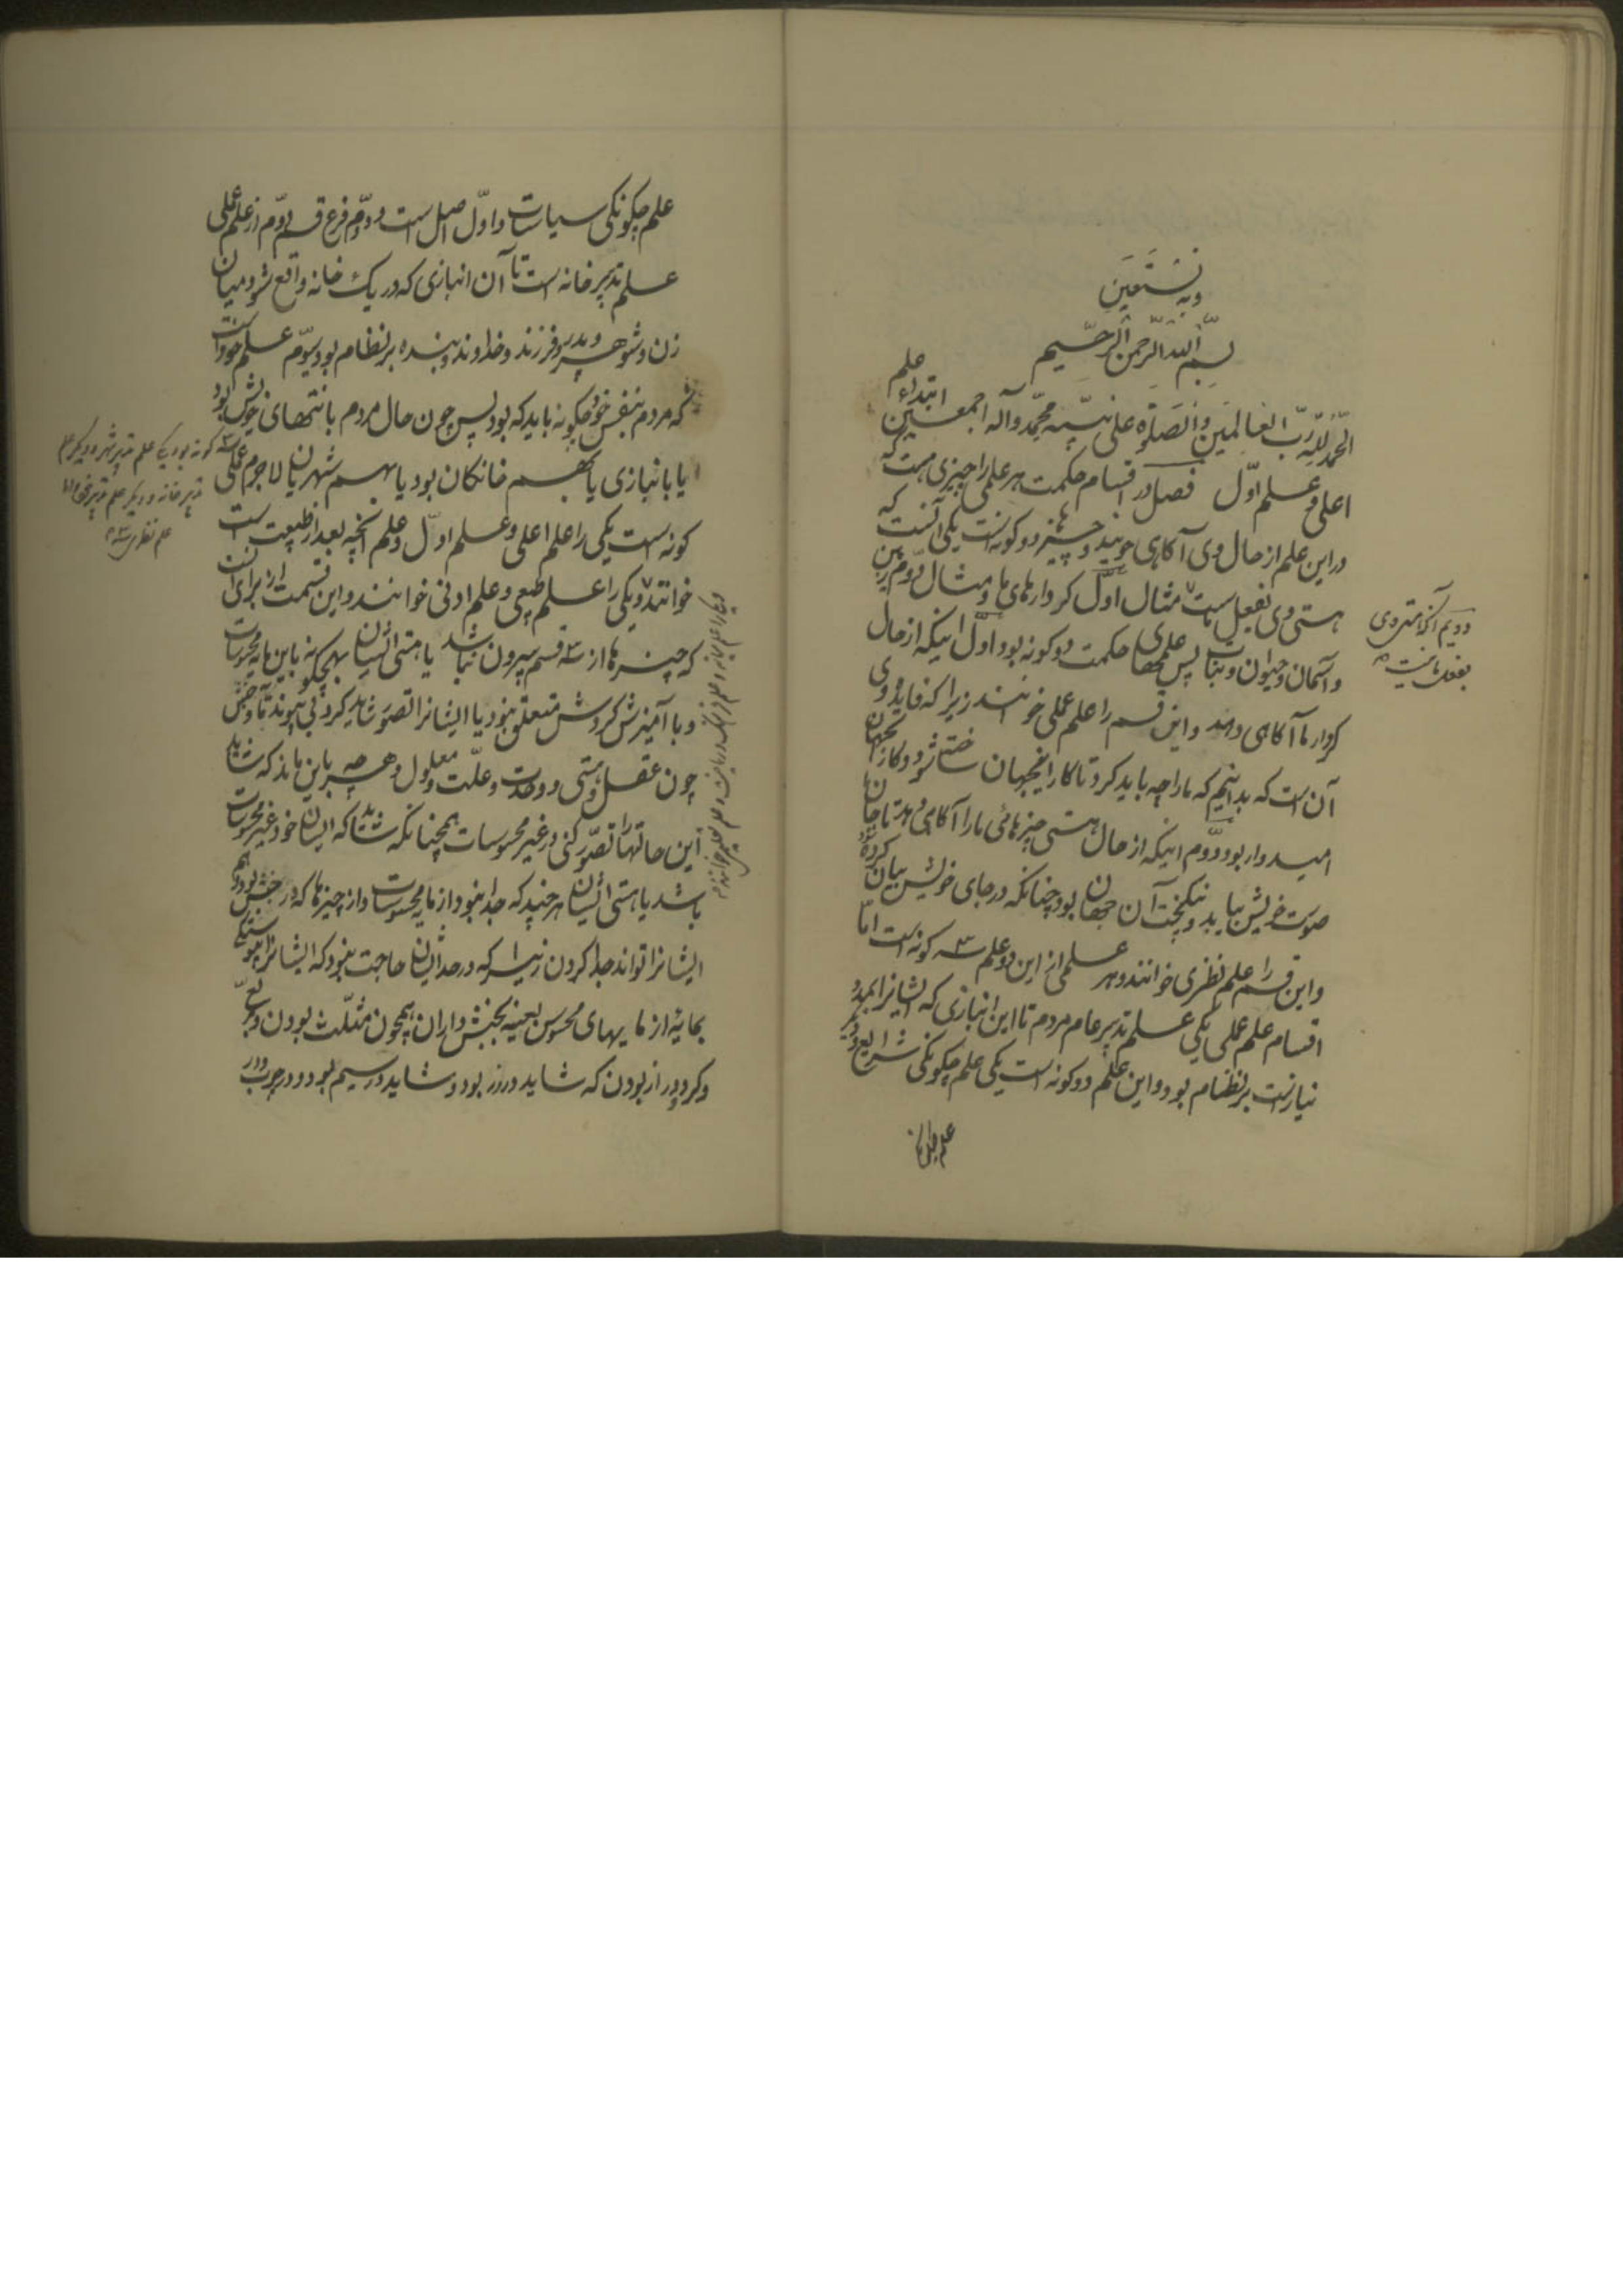 وبه نستعین
بسم الله الرحمن الرحیم
الحمد لله رب العالمین والصلوة علی نبیه محمد وآله اجمعین ابتداء علم
اعلی و علم اول فصل در اقسام حکمت هر علمی را چیزی هست که
در این علم از حال وی آکاهی جویند و چیزها دو کونه است یکی آنست که
هستی وی بفعل ماست مثال اول کردارهای ما و مثال دوم زمین
دویم آنکه هستی وی
بفعل ما نیست
و آسمان و حیوان و نبات پس علمهای حکمت دو کونه بود اول اینکه از حال
کردار ما آکاهی دهد و این قسم را علم عملی خوانند زیرا که فایده وی
آن است که بدانیم که ما را چه باید کرد تا کار اینجهان ساخته شود و کار آنجهان
امیدوار بود و دوم اینکه از حال هستی چیزهائی ما را آکاهی دهد تا جان ما
صورت خویش بیابد و نیکبخت آن جهان بود چنانکه در جای خویش بیان کرده شود
و این قسم را علم نظری خوانند و هر علمی از این دو علم سه کونه است اما
اقسام علم عملی یکی علم تدبیر عام مردم تا این انبازی که ایشانرا بدو
نیاز است بر نظام بود و این علم دو کونه است یکی علم چکونکی شرایع و دیگر
علم چکونکی سیاسات و اول اصل است و دوم فرع قسم دوم از علم عملی
علم تدبیر خانه است تا آن انبازی که در یک خانه واقع شود میان
زن و شوهر و پدر و فرزند و خداوند و بنده بر نظام بود سوم علم خود است
که مردم بنفس خود چکونه باید که بود پس چون حال مردم یا بتنهای خویش بود
یا بانبازی یا بهم خانکان بود یا بهم شهریان لاجرم علم عملی
سه کونه بود یکی علم تدبیر شهر و دیکر علم
تدبیر خانه و دیکر علم تدبیر خود اما
علم نظری سه
کونه است یکی را علم اعلی و علم اول و علم آنچه بعد از طبیعت است
خوانند و یکی را علم طبیعی و علم ادنی خوانند و این قسمت از برای آنست
که چیزها از سه قسم بیرون نباشد یا هستی ایشان بهیچکونه باین مایه محسوسات
و با آمیزش کردش متعلق نبود یا ایشانرا تصور شاید کرد بی پیوند ماده و جنبش
چون عقل و هستی و وحدت و علت و معلول و هر چه باین ماند که شاید
این حالتها را تصور کنی در غیر محسوسات همچنانکه شاید که ایشان خود غیر محسوسات
باشد یا هستی ایشان هر چند که جدا نبود از مایه محسوسات و از چیزها که در جنبش بود و هم
ایشانرا تواند جدا کردن زیرا که در حد ایشان حاجت نبود که ایشانرا پیوستگی
بمایهٔ از مایهای محسوس بعینه بجنبش داران همچون مثلث بودن و مربع
و کرد و دراز بودن که شاید در زر بود و شاید در سیم بود و در چوب و در